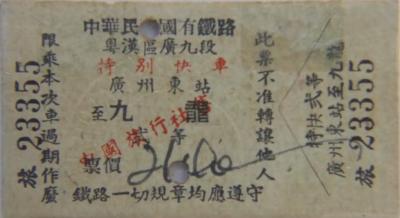 中華民國有鐵路
粵漢區廣九段
特別快車
廣州東站
至九龍
貳等
中國旅行社
票價
鐵路一切規章均應遵守
此票不准轉讓他人
限乘本次車過期作廢
旅 23355
特快貳等
廣州東站至九龍
旅 23355